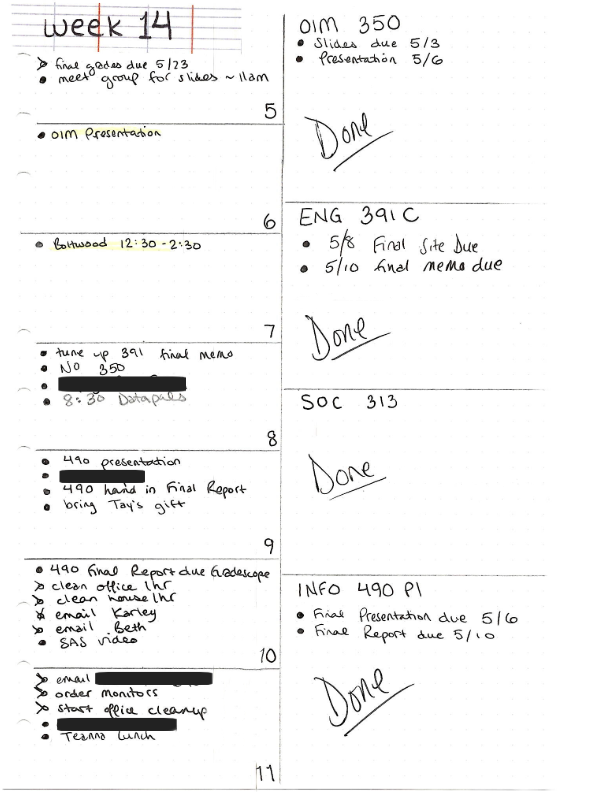 week 14
final grades due 5/23
meet group for slides ~ 11am
5
OIM Presentation
6
Boltwood 12:30 - 2:30
7
tune up 391 final memo
NO 350
8:30 Datapals
8
490 presentation
490 hand in Final Report
bring Tay's gift
9
490 Final Report due Gradescope
clean office 1hr
clean house 1hr
email Karley
email Beth
SAS video
10
email
order monitors
start office cleanup
Teanna Lunch
11
OIM 350
Slides due 5/3
Presentation 5/6
Done
ENG 391C
5/8 Final Site Due
5/10 final memo due
Done
SOC 313
Done
INFO 490 PI
Final Presentation due 5/6
Final Report due 5/10
Done